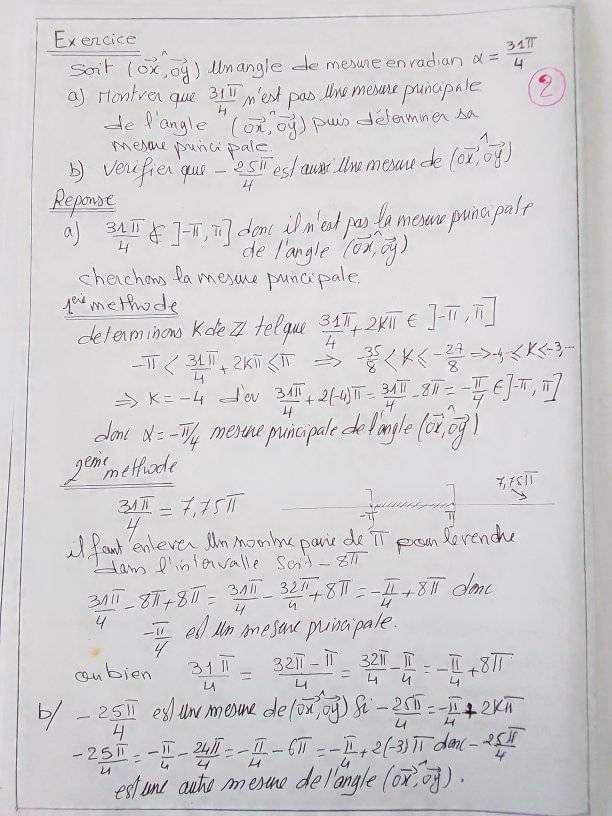 Exercice
Soit (ox, oy) un angle de mesure en radian α = 31π/4
a) Montrer que 31π/4 n'est pas une mesure principale
2
de l'angle (ox, oy) puis déterminer sa
mesure principale.
b) vérifier que - 25π/4 est aussi une mesure de (ox, oy)
Reponse
a) 31π/4 ∉ ]-π, π] donc il n'est pas la mesure principale
de l'angle (ox, oy)
cherchons la mesure principale.
1ere methode
determinons K de Z tel que 31π/4 + 2Kπ ∈ ]-π, π]
-π < 31π/4 + 2Kπ ≤ π ⇒ -35/8 < K ≤ -27/8 ⇒ -4,- ≤ K ≤ -3,-
⇒ K = -4 d'ou 31π/4 + 2(-4)π = 31π/4 - 8π = -π/4 ∈ ]-π, π]
donc α = -π/4 mesure principale de l'angle (ox, oy)
2eme methode
31π/4 = 7,75π
-π π 7,75π
il faut enlever un nombre paire de π pour le rendre
dans l'intervalle soit - 8π
31π/4 - 8π + 8π = 31π/4 - 32π/4 + 8π = -π/4 + 8π donc
-π/4 est un mesure principale.
ou bien 31π/4 = 32π - π/4 = 32π/4 - π/4 = -π/4 + 8π
b/ - 25π/4 est une mesure de (ox, oy) Si - 25π/4 = -π/4 + 2Kπ
- 25π/4 = -π/4 - 24π/4 = -π/4 - 6π = -π/4 + 2(-3)π donc - 25π/4
est une autre mesure de l'angle (ox, oy).